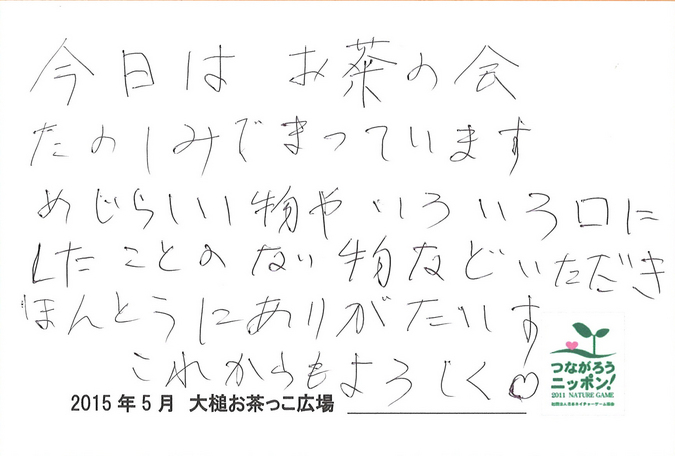 今日は お茶の会
たのしみでまっています
めじらしい物やいろいろ口に
したことのない物などいただき
ほんとうにありがたいす
これからもよろしく♡
2015年5月 大槌お茶っこ広場
つながろう
ニッポン!
2011 NATURE GAME